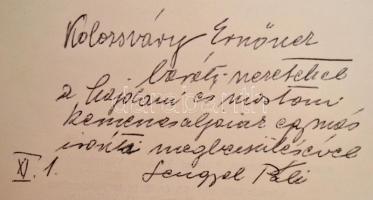 Kolozsváry Ernőnek
baráti szeretettel
a hajdani és mostani
kemenesaljaiak egymás
iránti megbecsülésével
XI. 1. Lengyel Pali